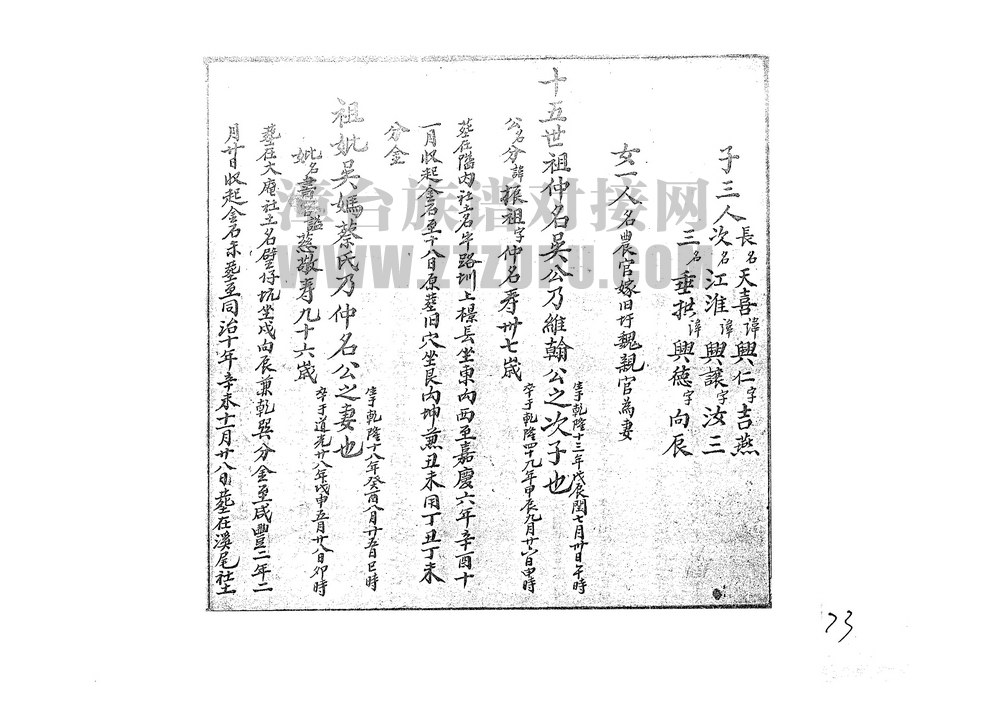 長名天喜諱興仁字吉燕
子三人次名江淮諱興讓字汝三
三名垂拱諱興德字向辰
女一人名農官嫁旧圩魏親官為妻
生于乾隆十三年戊辰閏七月卅日午時
十五世祖仲名吳公乃維翰公之次子也
卒于乾隆四十九年甲辰九月廿六日申時
公名分諱振祖字仲名寿卅七歲
塟在隘内社土名牛路圳上樣長坐東向西至嘉慶六年辛酉十
一月收起金石至十八日原塟旧穴坐艮向坤兼丑未用丁丑丁未
分金
生于乾隆十八年癸酉八月廿五日巳時
祖妣吳媽蔡氏乃仲名公之妻也
卒于道光廿八年戊申五月廿八日卯時
妣名書謚慈敬寿九十六歲
塟在大庵社土名壁仔坑坐戌向辰兼乾巽分金至咸豐二年二
月廿日收起金石未塟至同治十年辛未十一月廿八日塟在溪尾社土
漳台族谱对接网
www.zzzupu.com
73